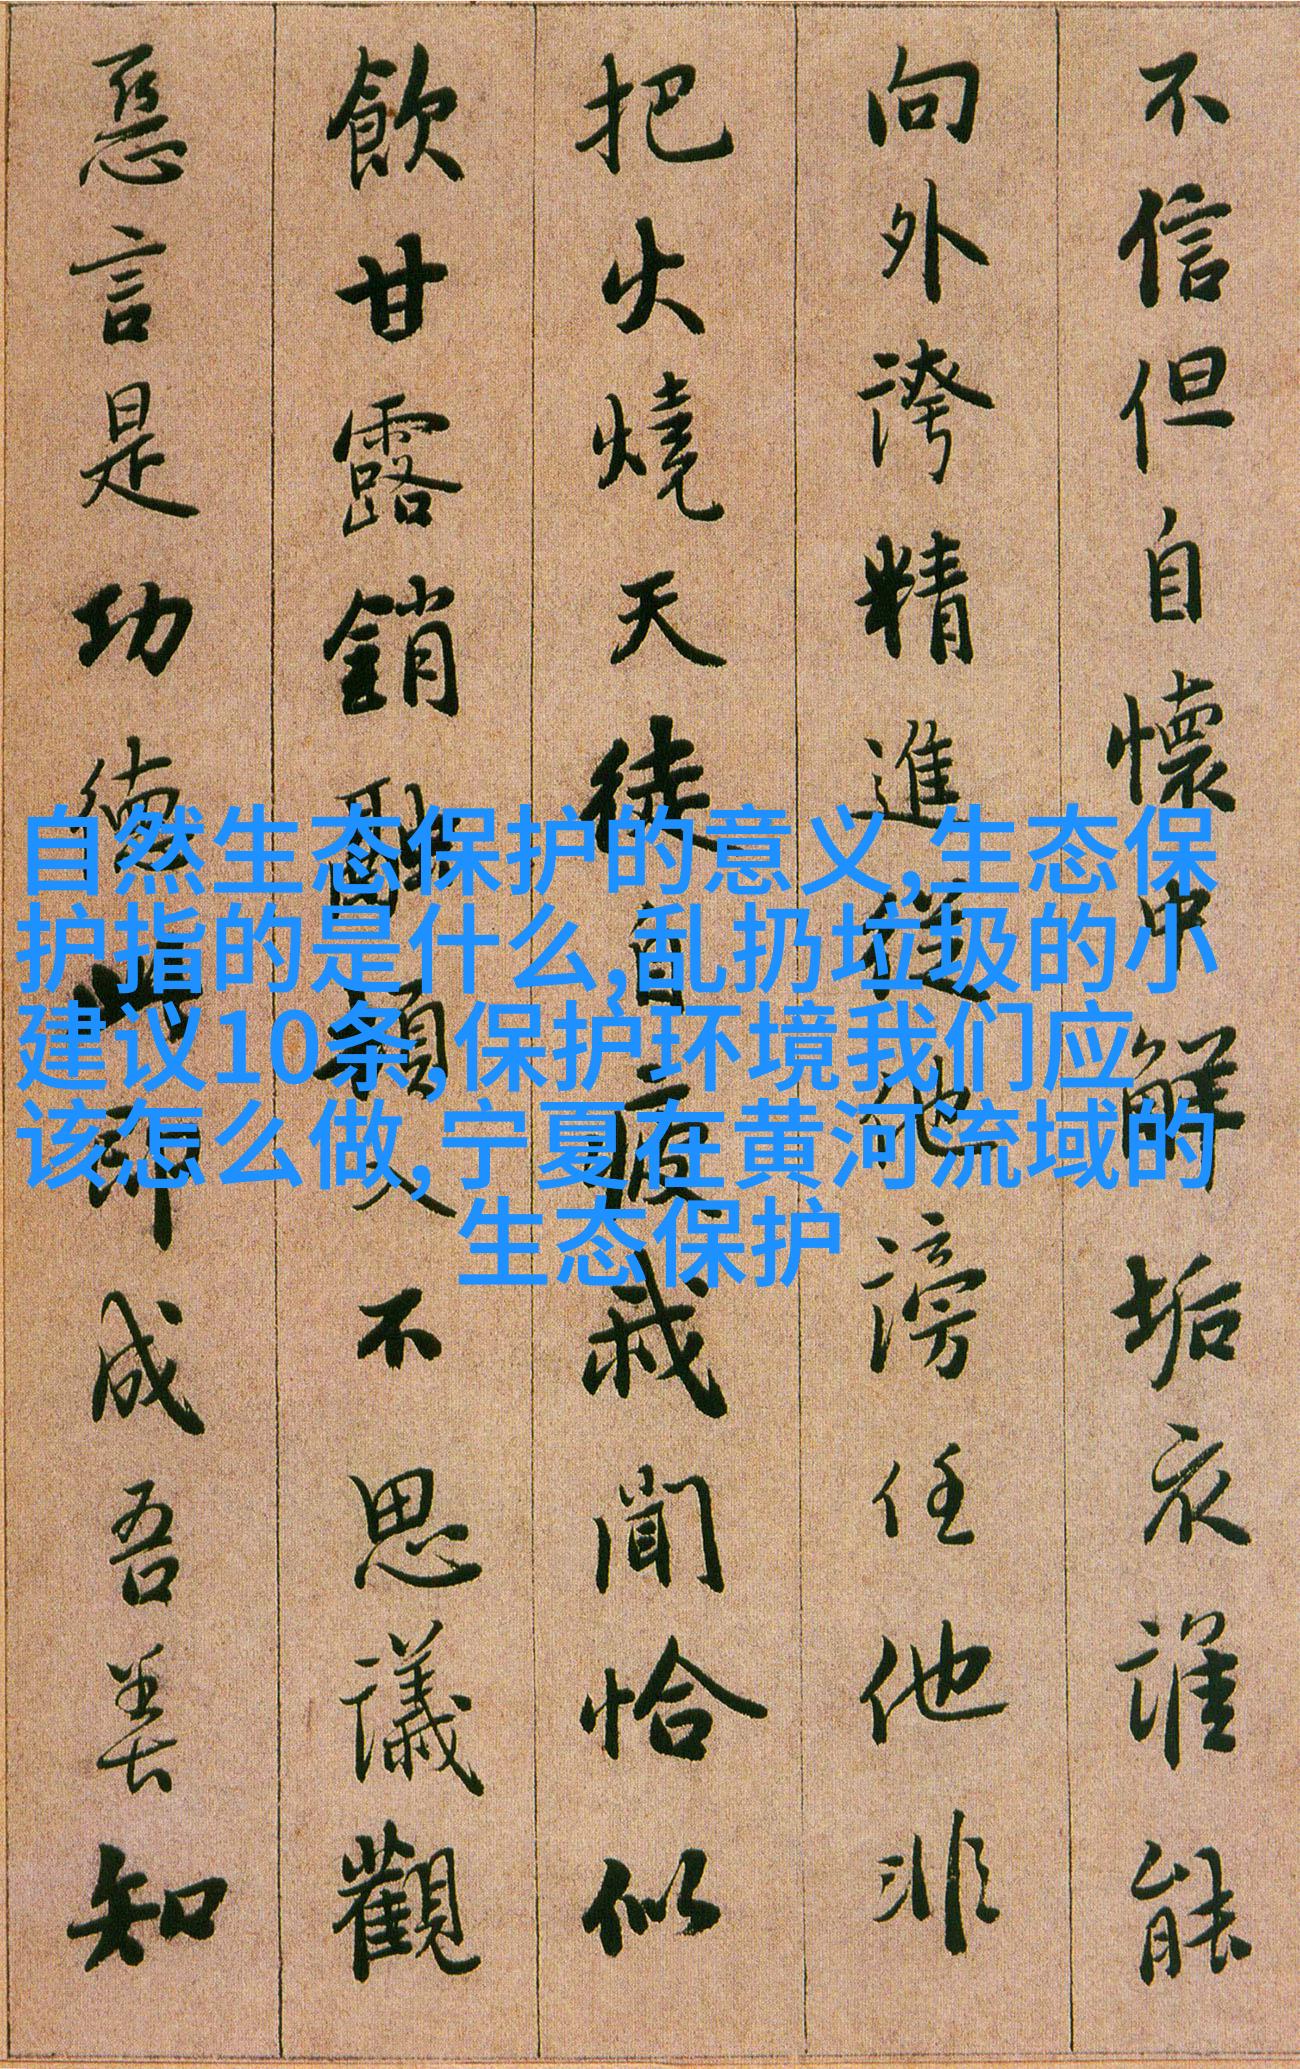 不信但自懷中解垢衣誰能
向外誇精進從他謗任他非
把火燒天徒自疲我聞恰似
飲甘露銷融頓入不思議觀
惡言是功德此即成吾善知
自然生态保护的意义,生态保
护指的是什么,乱扔垃圾的小
建议10条,保护环境我们应
该怎么做,宁夏在黄河流域的
生态保护